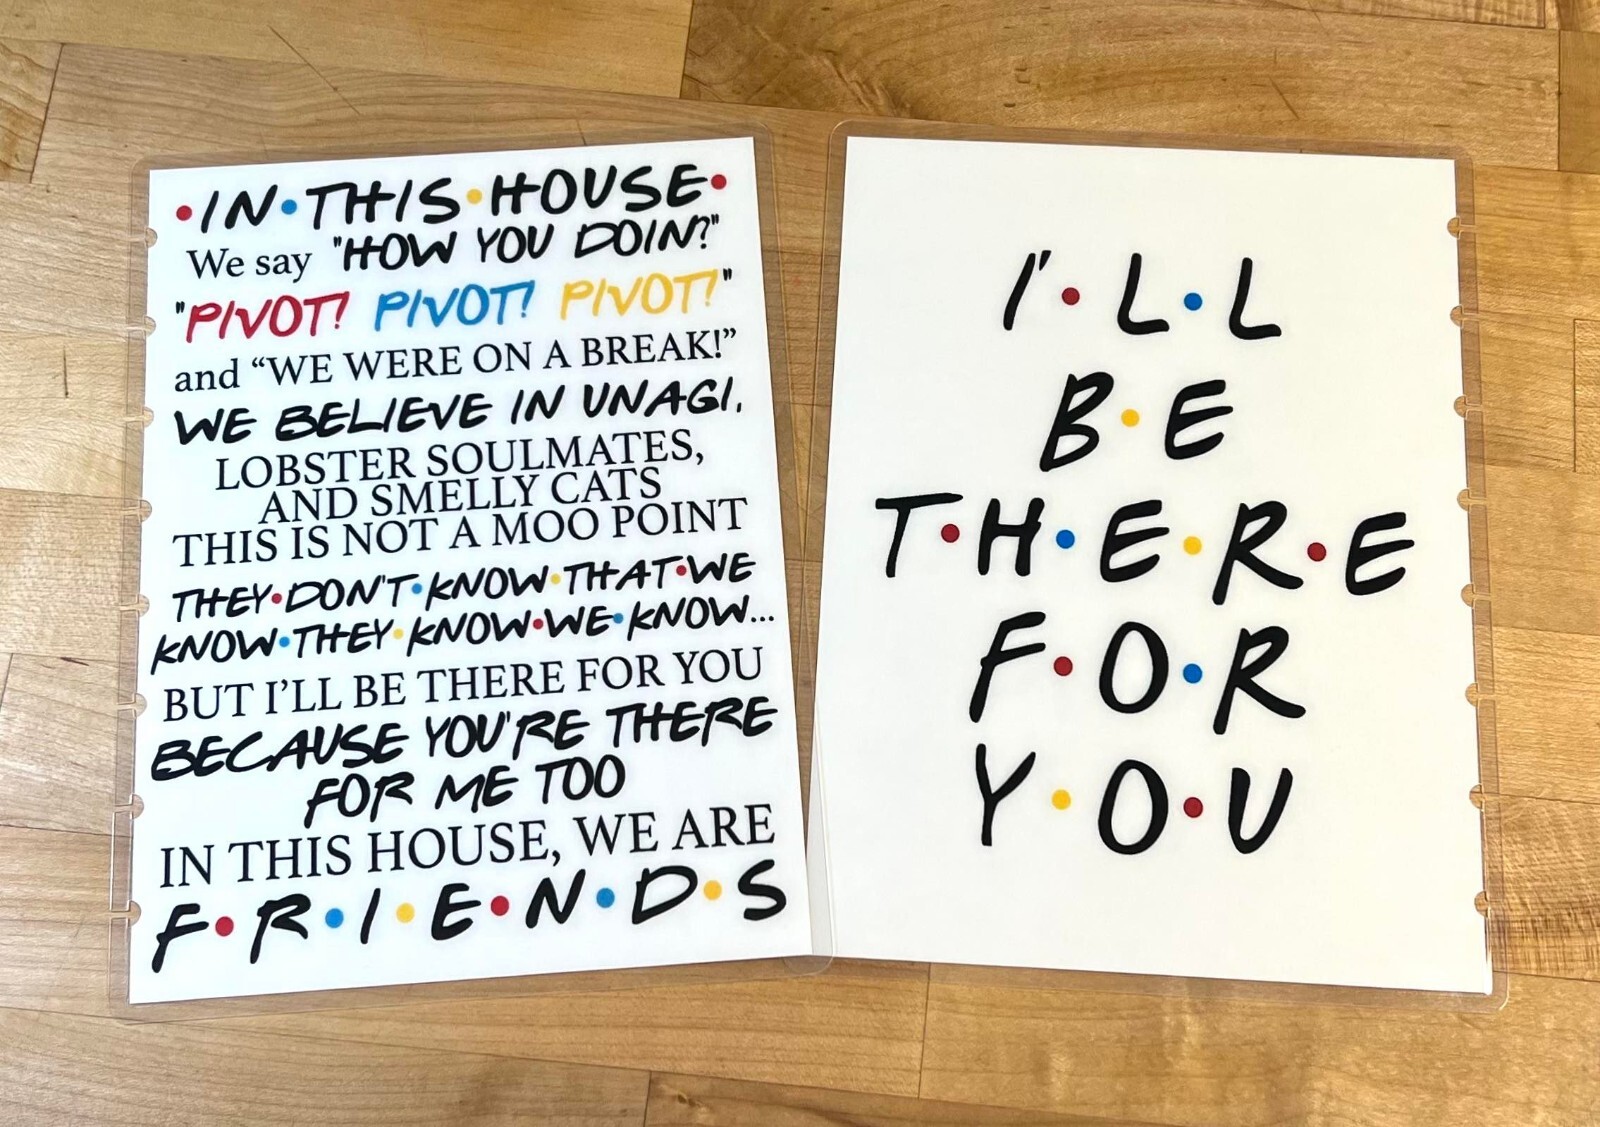 •IN•THIS•HOUSE•
We say "HOW YOU DOIN?"
"PIVOT! PIVOT! PIVOT!"
and “WE WERE ON A BREAK!”
WE BELIEVE IN UNAGI,
LOBSTER SOULMATES,
AND SMELLY CATS
THIS IS NOT A MOO POINT
THEY•DON'T•KNOW•THAT•WE
KNOW•THEY•KNOW•WE•KNOW...
BUT I’LL BE THERE FOR YOU
BECAUSE YOU'RE THERE
FOR ME TOO
IN THIS HOUSE, WE ARE
F•R•I•E•N•D•S
I'•L•L
B•E
T•H•E•R•E
F•O•R
Y•O•U